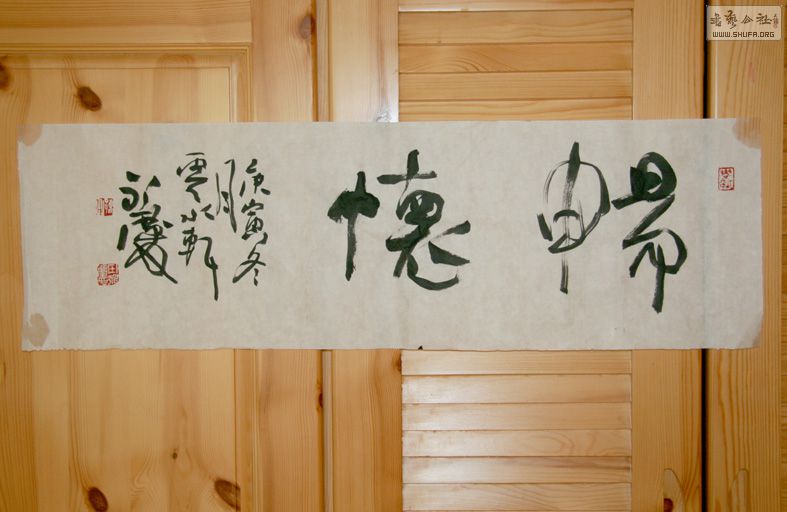 暢懷
庚寅冬
月
雲水軒
書藝公社
WWW.SHUFA.ORG